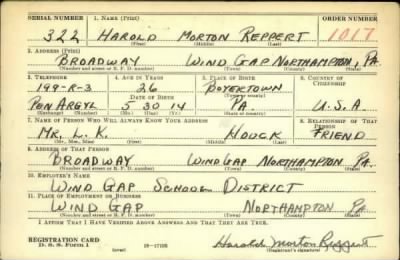 SERIAL NUMBER 1. NAME (Print) ORDER NUMBER
322 HAROLD MORTON REPPERT 1017
(First) (Middle) (Last)
2. ADDRESS (Print)
BROADWAY WIND GAP NORTHAMPTON, PA.
(Number and street or R. F. D. number) (Town) (County) (State)
3. TELEPHONE 4. AGE IN YEARS 5. PLACE OF BIRTH 6. COUNTRY OF CITIZENSHIP
199-R-3 26 BOYERTOWN
DATE OF BIRTH (Town or county)
PEN ARGYL 5 30 14 PA U.S.A.
(Exchange) (Number) (Mo.) (Day) (Yr.) (State or country)
7. NAME OF PERSON WHO WILL ALWAYS KNOW YOUR ADDRESS 8. RELATIONSHIP OF THAT PERSON
MR. L. K. HOUCK FRIEND
(Mr., Mrs., Miss) (First) (Middle) (Last)
9. ADDRESS OF THAT PERSON
BROADWAY WIND GAP NORTHAMPTON PA.
(Number and street or R. F. D. number) (Town) (County) (State)
10. EMPLOYER'S NAME
WIND GAP SCHOOL DISTRICT
11. PLACE OF EMPLOYMENT OR BUSINESS
WIND GAP NORTHAMPTON PA.
(Number and street or R. F. D. number) (Town) (County) (State)
I AFFIRM THAT I HAVE VERIFIED ABOVE ANSWERS AND THAT THEY ARE TRUE.
REGISTRATION CARD
D. S. S. Form 1 (over) Harold Morton Reppert
(Registrant's signature)